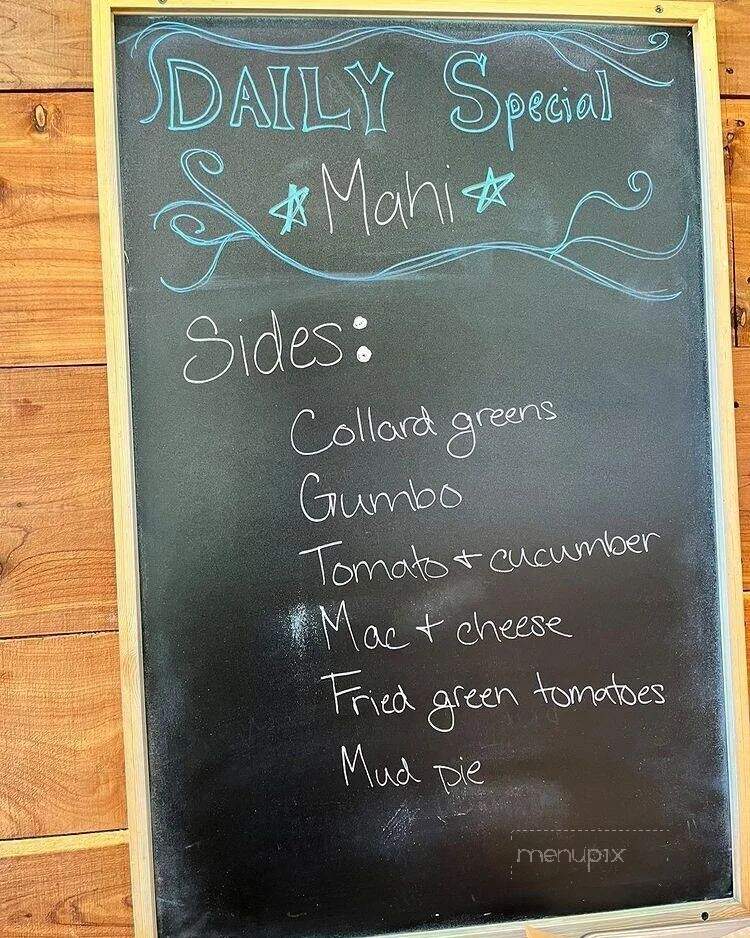 DAILY Special
Mahi
Sides:
Collard greens
Gumbo
Tomato + cucumber
Mac + cheese
Fried green tomatoes
Mud pie
menupix